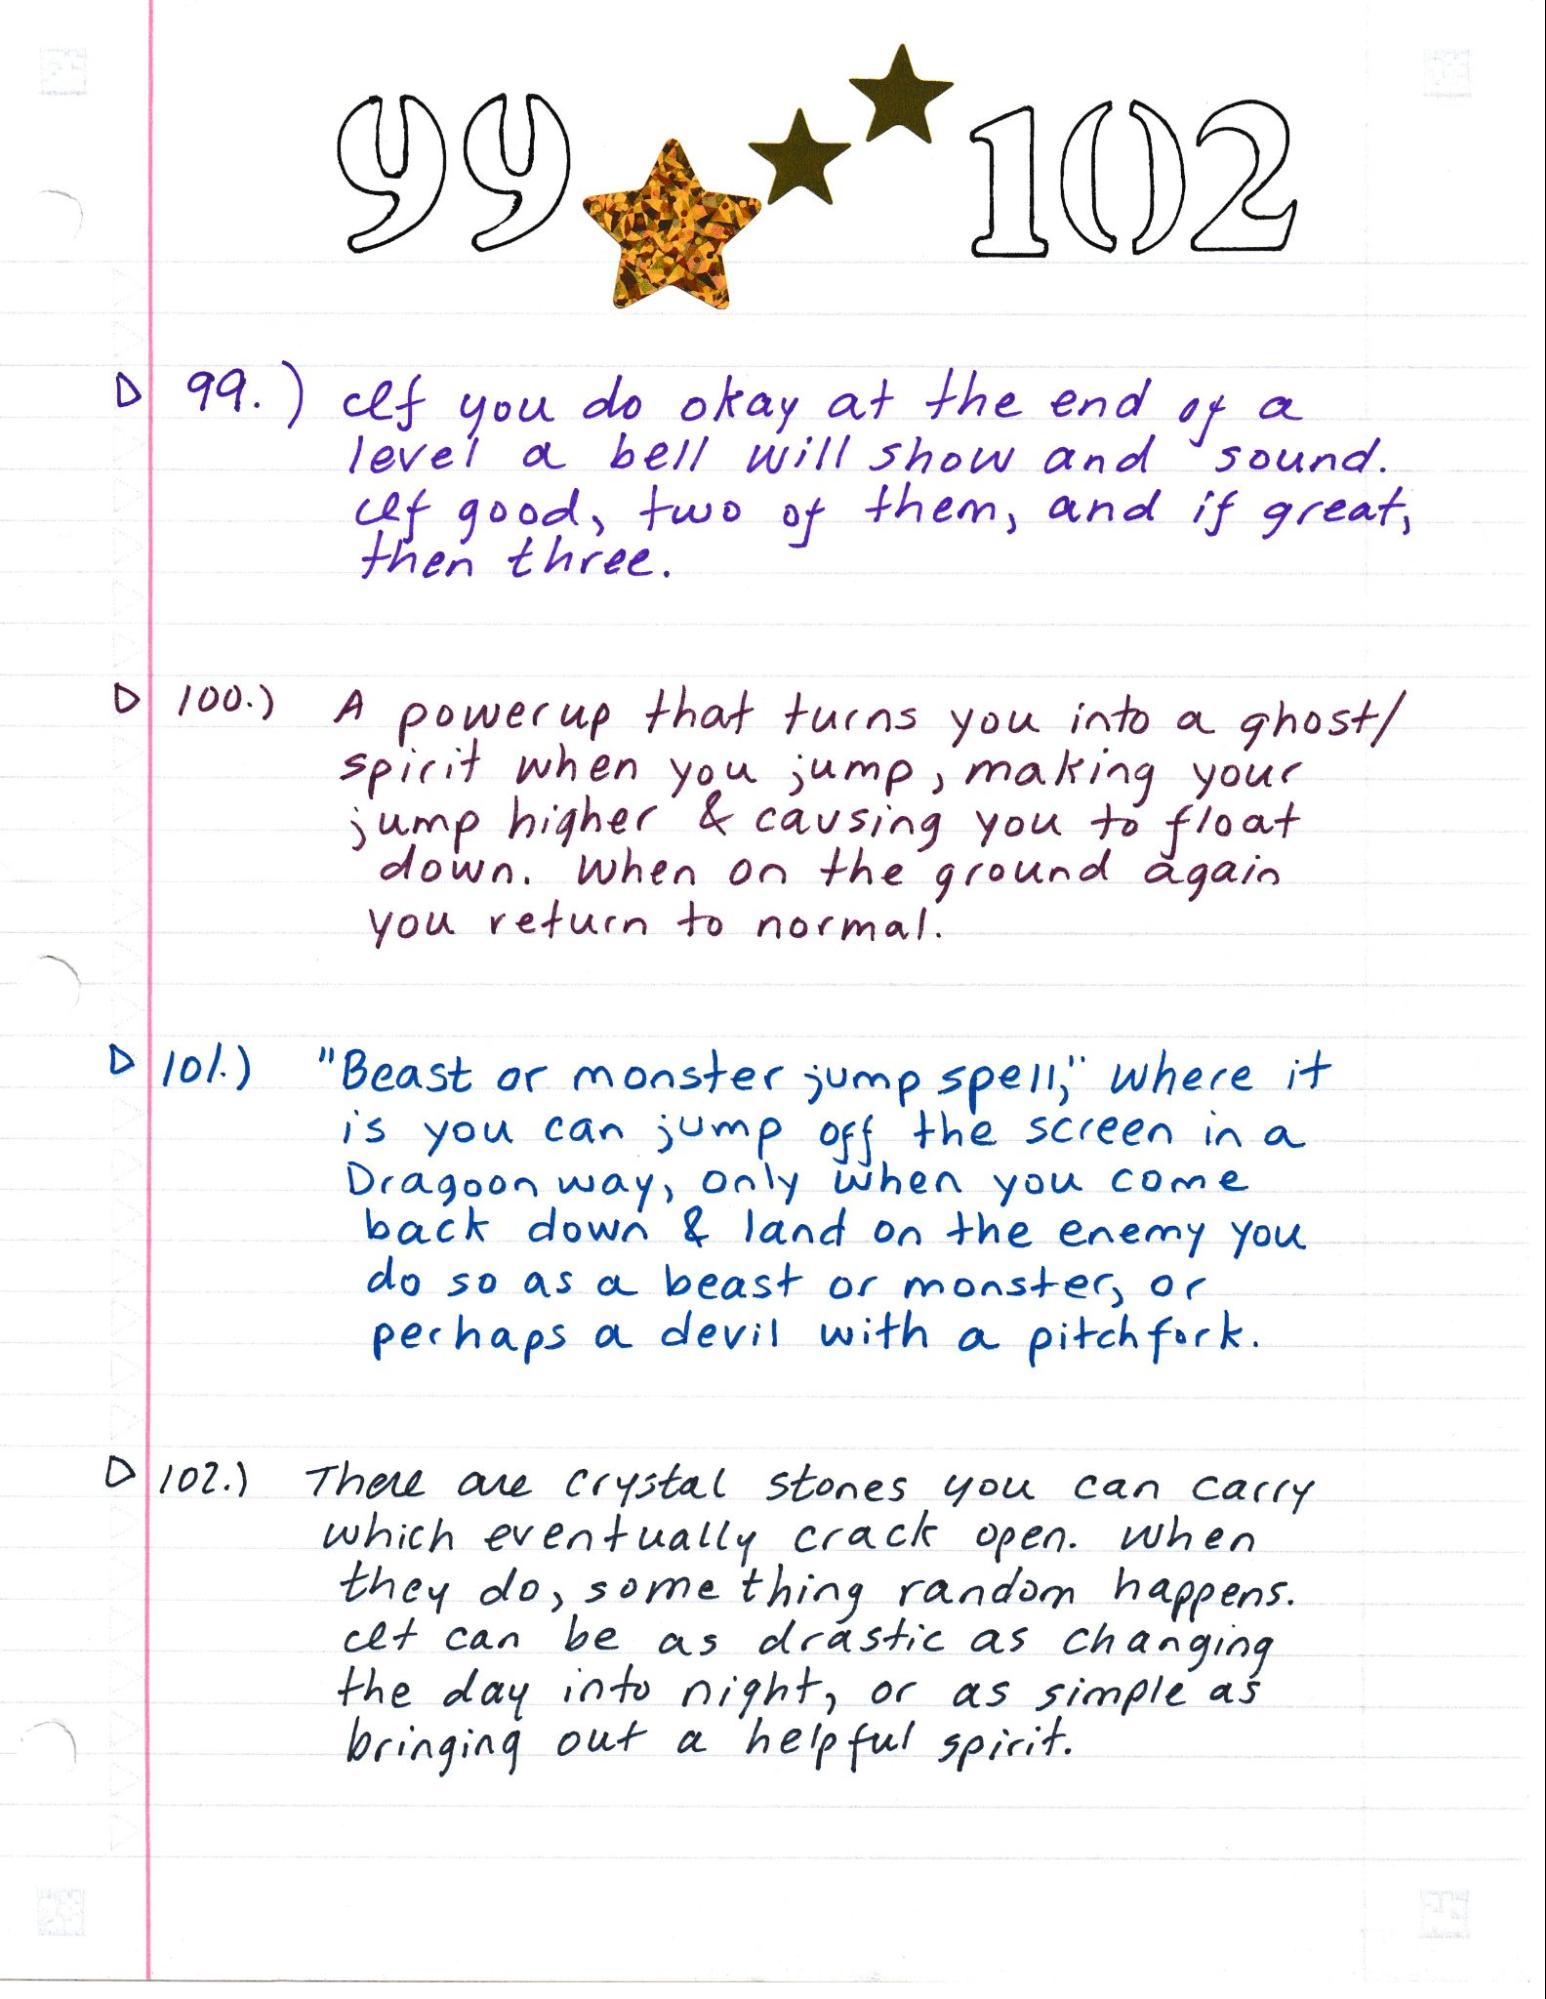 99 102
D 99.) If you do okay at the end of a
level a bell will show and sound.
If good, two of them, and if great,
then three.
D 100.) A powerup that turns you into a ghost/
spirit when you jump, making your
jump higher & causing you to float
down. When on the ground again
you return to normal.
D 101.) "Beast or monster jump spell," where it
is you can jump off the screen in a
Dragoon way, only when you come
back down & land on the enemy you
do so as a beast or monster, or
perhaps a devil with a pitchfork.
D 102.) There are crystal stones you can carry
which eventually crack open. When
they do, something random happens.
It can be as drastic as changing
the day into night, or as simple as
bringing out a helpful spirit.